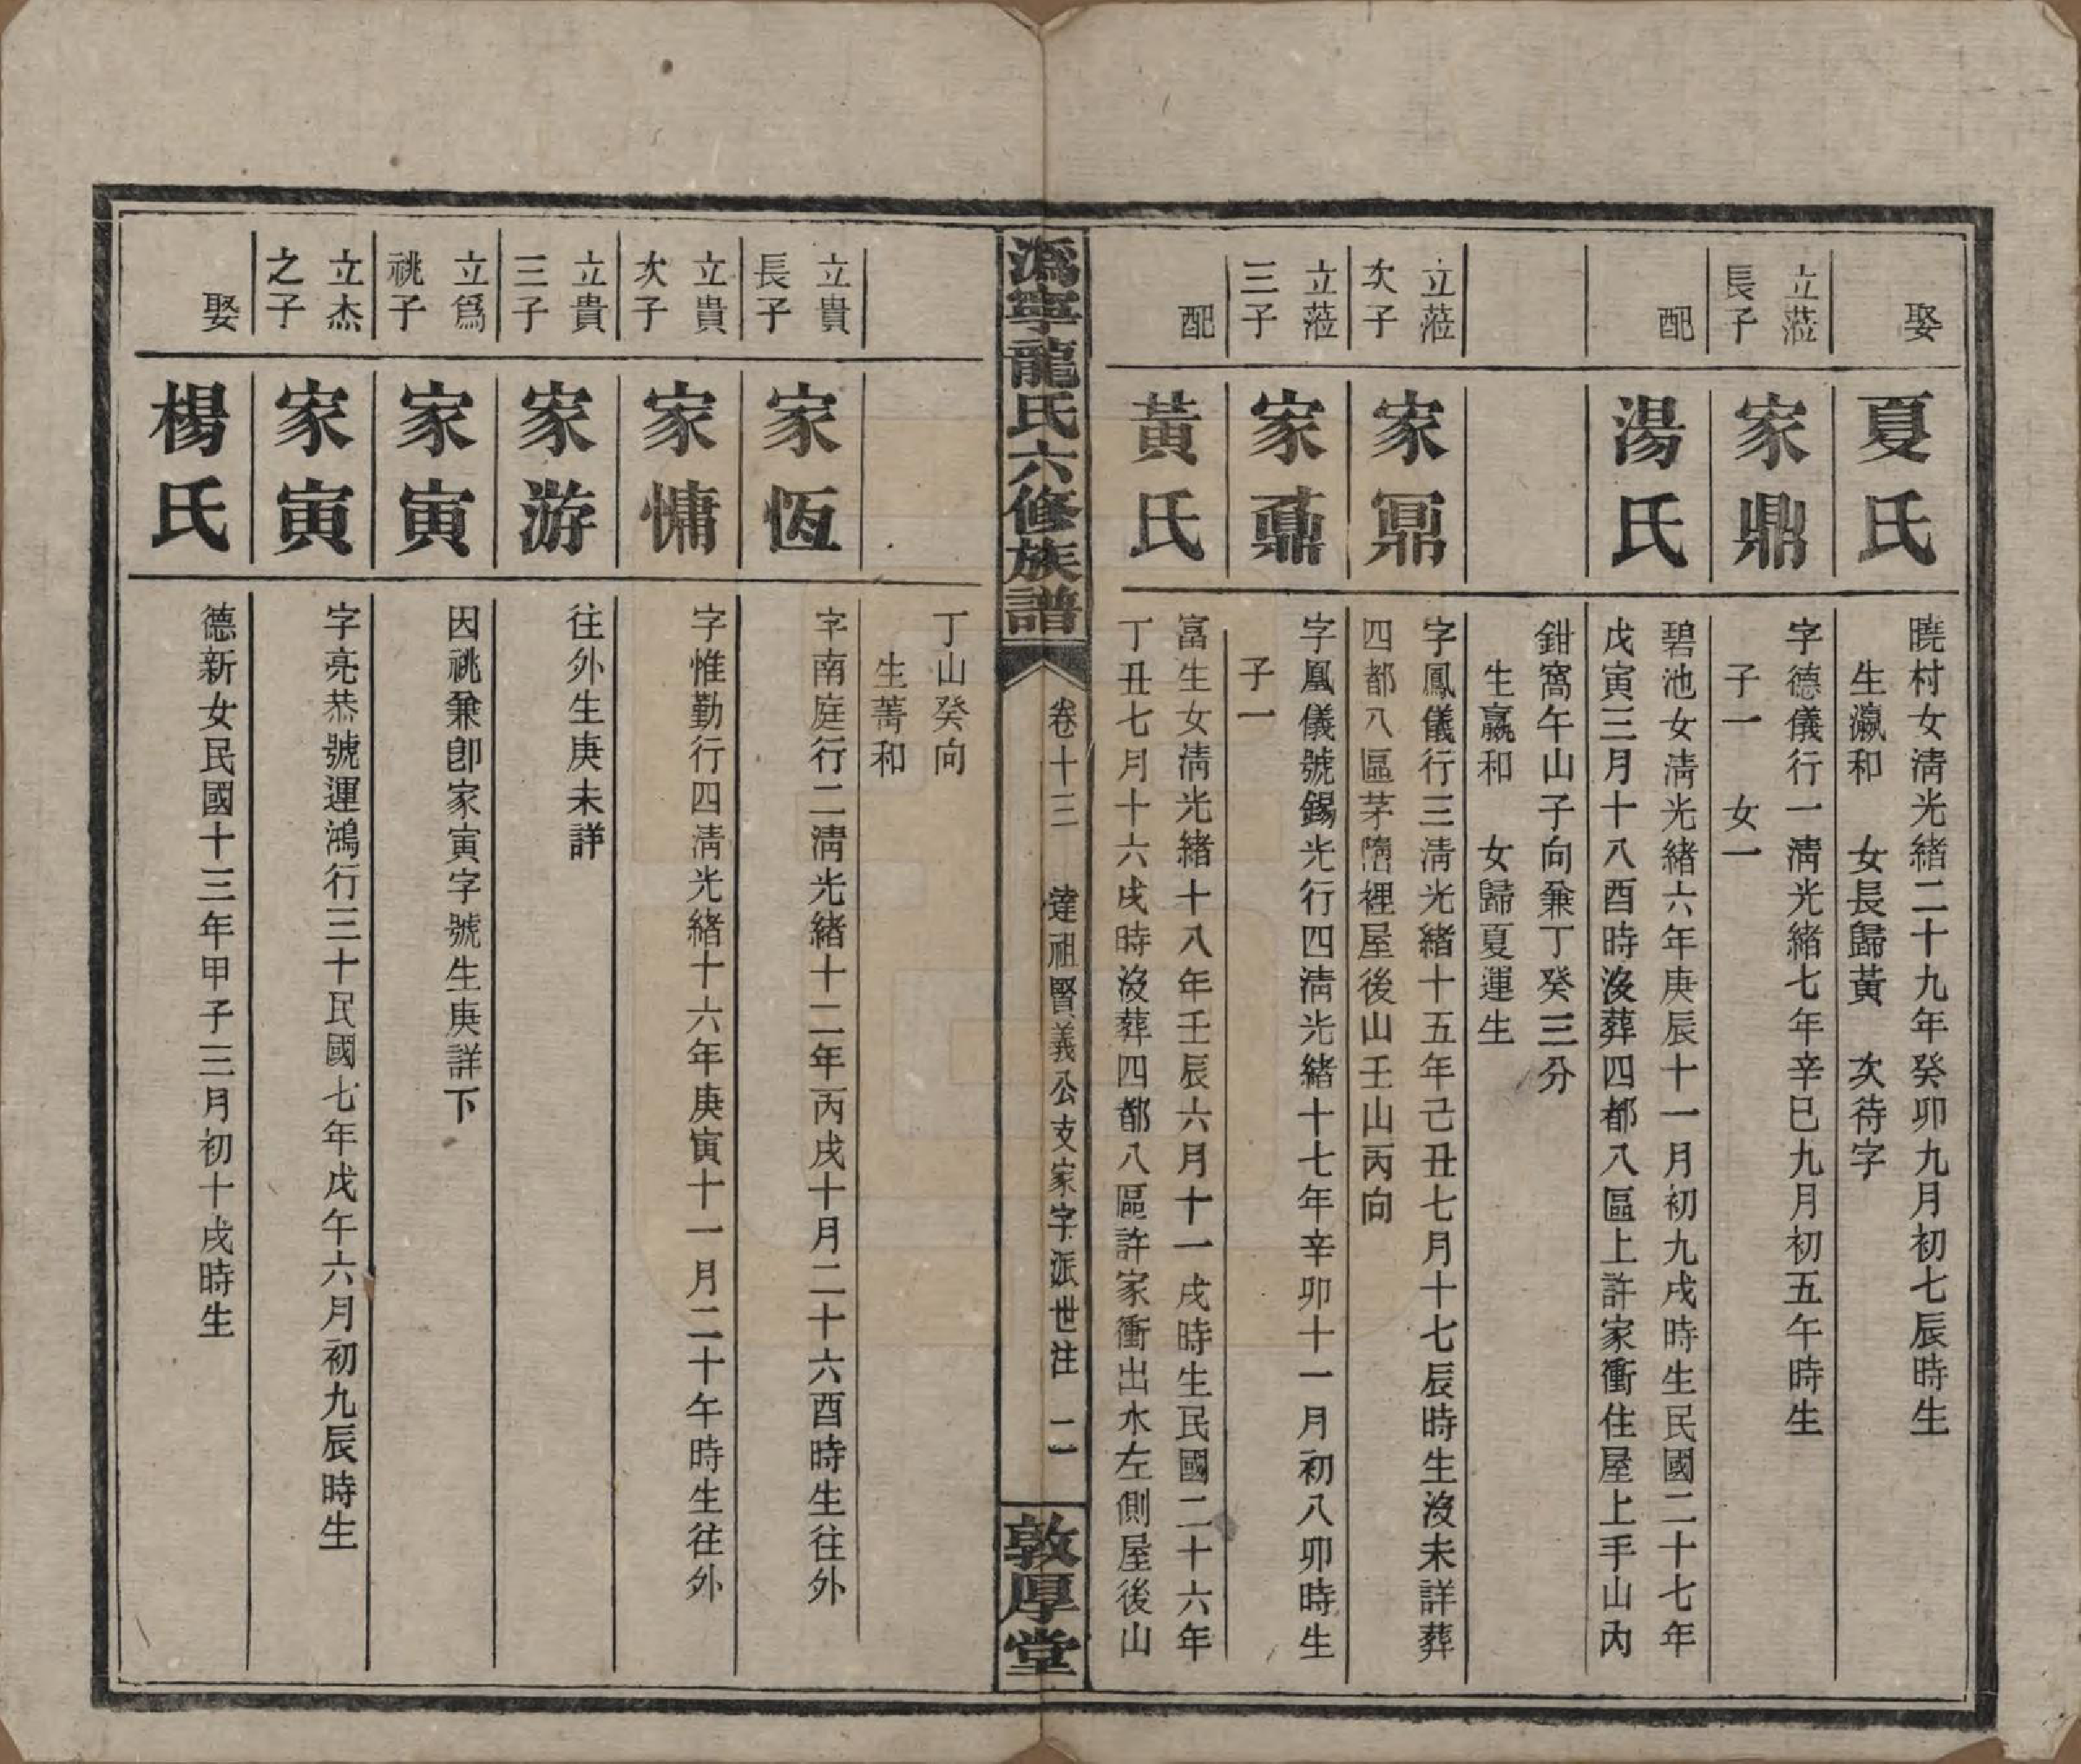 娶
夏氏
曉村女淸光緖二十九年癸卯九月初七辰時生
生瀛和　女長歸黃　次待字
立蒞
長子
家鼎
字德儀行一淸光緖七年辛巳九月初五午時生
子一　女一
配
湯氏
碧池女淸光緖六年庚辰十一月初九戌時生民國二十七年
戊寅三月十八酉時沒葬四都八區上許家衝住屋上手山內
鉗窩午山子向兼丁癸三分
生嬴和　女歸夏運生
立蒞
次子
家鼏
字鳳儀行三淸光緖十五年己丑七月十七辰時生沒未詳葬
四都八區茅隝裡屋後山壬山丙向
立蒞
三子
家鼒
字凰儀號錫光行四淸光緖十七年辛卯十一月初八卯時生
子一
配
黃氏
富生女淸光緖十八年壬辰六月十一戌時生民國二十六年
丁丑七月十六戌時沒葬四都八區許家衝出水左側屋後山
溈寧龍氏六修族譜
卷十三　達祖賢義公支家字派世注　二一
敦厚堂
丁山癸向
生菁和
立貴
長子
家恆
字南庭行二淸光緖十二年丙戌十月二十六酉時生往外
立貴
次子
家慵
字惟勤行四淸光緖十六年庚寅十一月二十午時生往外
立貴
三子
家游
往外生庚未詳
立爲
祧子
家寅
因祧兼卽家寅字號生庚詳下
立杰
之子
家寅
字亮恭號運鴻行三十民國七年戊午六月初九辰時生
娶
楊氏
德新女民國十三年甲子三月初十戌時生